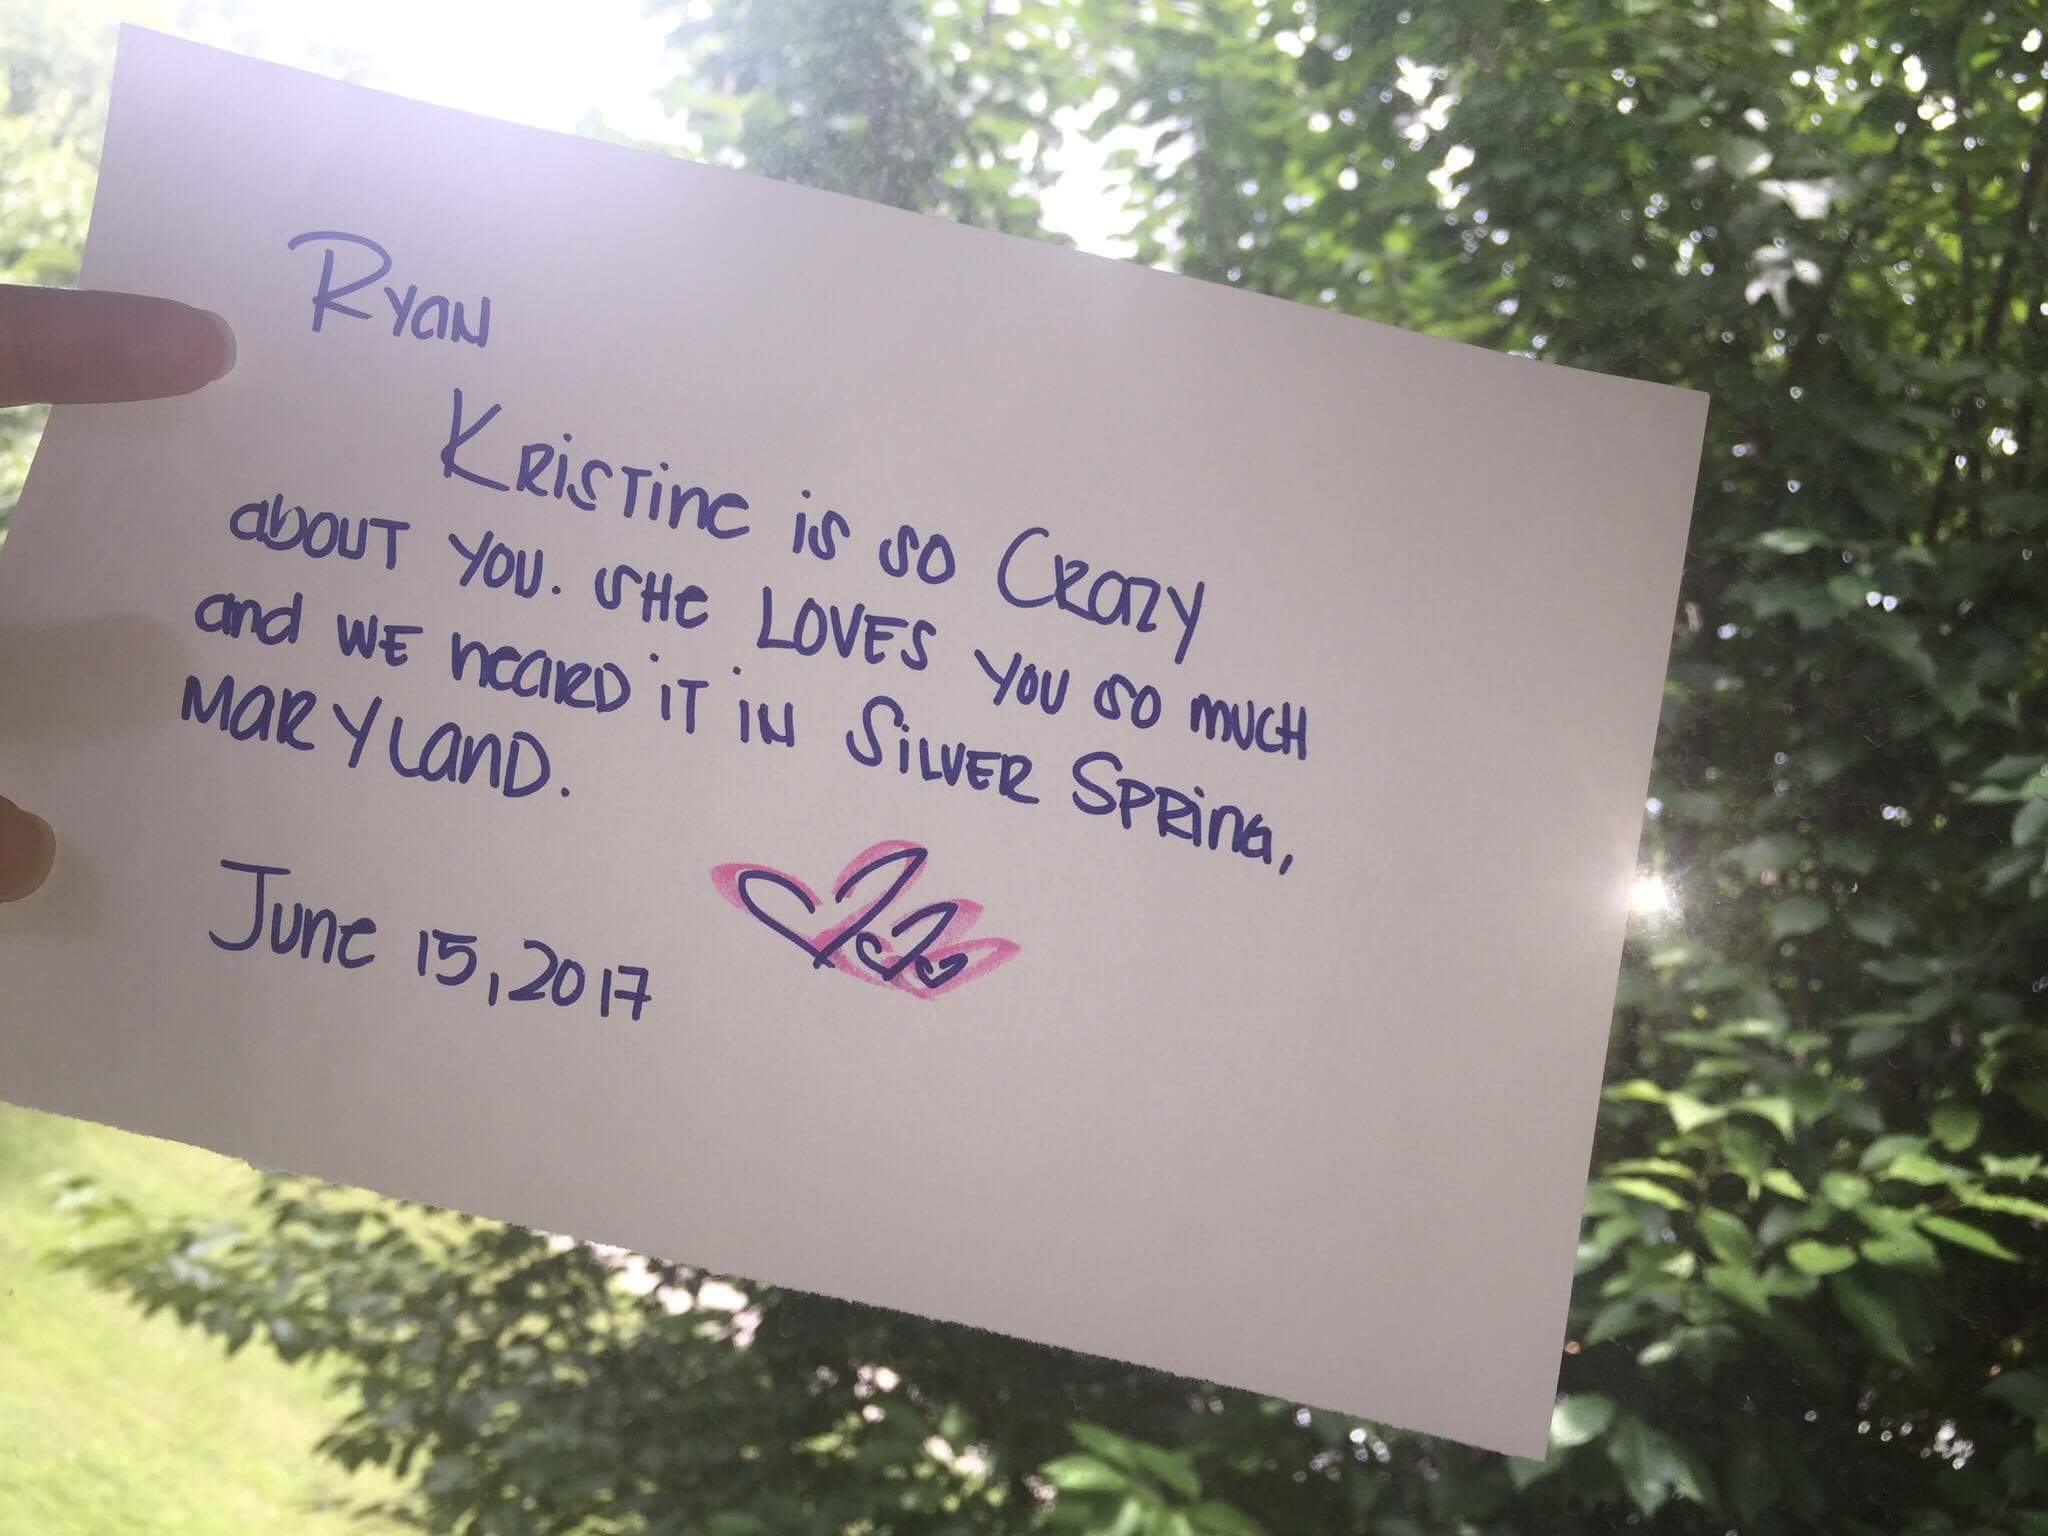 Ryan
Kristine is so Crazy
about you. She LOVES you so much
and WE heard it in Silver Spring,
Maryland.
June 15, 2017